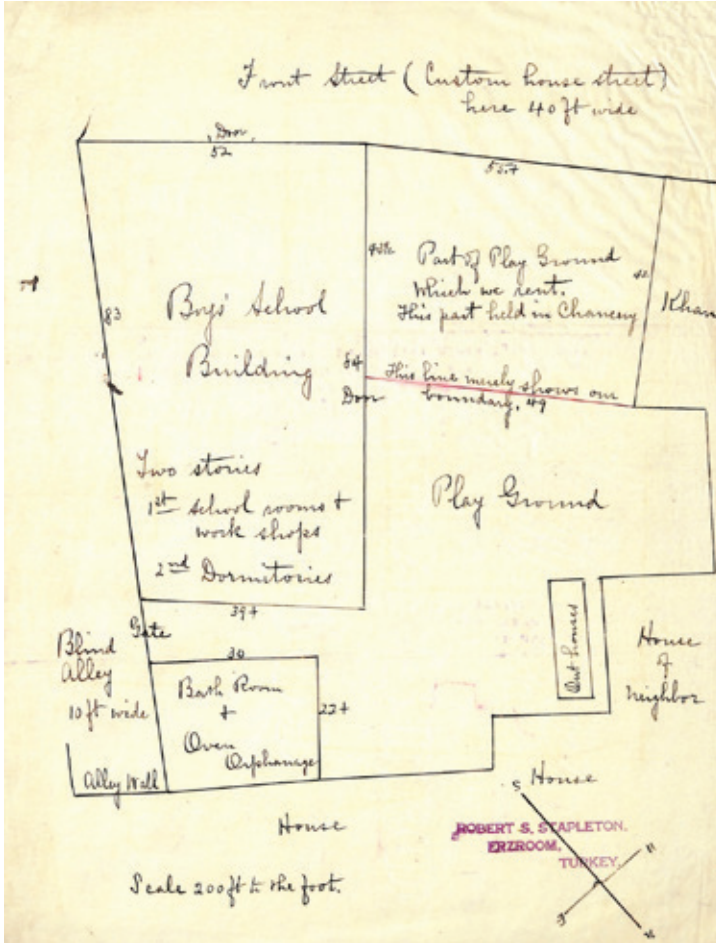 Front Street (Custom house street)
here 40 ft wide
Door
52
55.+
Part of Play Ground
which we rent.
This part held in Chancery
42
Khan
83
Boys' School
Building
84
Door
This line merely shows our
boundary. 49
Two stories
1st school rooms +
work shops
2nd Dormitories
Play Ground
39+
Gate
Blind
Alley
10 ft wide
30
Bath Room
+
Oven
Orphanage
22+
Out houses
House
of
neighbor
Alley Wall
House
House
S
ROBERT S. STAPLETON.
ERZROOM,
TURKEY.
Scale 200 ft to the foot.